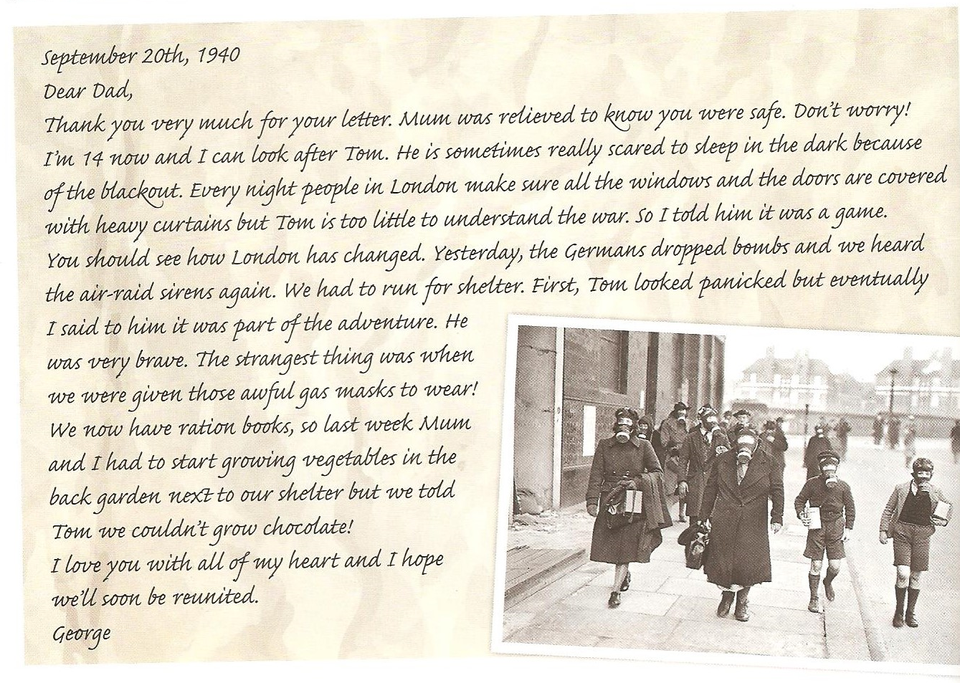 September 20th, 1940
Dear Dad,
Thank you very much for your letter. Mum was relieved to know you were safe. Don't worry!
I'm 14 now and I can look after Tom. He is sometimes really scared to sleep in the dark because
of the blackout. Every night people in London make sure all the windows and the doors are covered
with heavy curtains but Tom is too little to understand the war. So I told him it was a game.
You should see how London has changed. Yesterday, the Germans dropped bombs and we heard
the air-raid sirens again. We had to run for shelter. First, Tom looked panicked but eventually
I said to him it was part of the adventure. He
was very brave. The strangest thing was when
we were given those awful gas masks to wear!
We now have ration books, so last week Mum
and I had to start growing vegetables in the
back garden next to our shelter but we told
Tom we couldn't grow chocolate!
I love you with all of my heart and I hope
we'll soon be reunited.
George